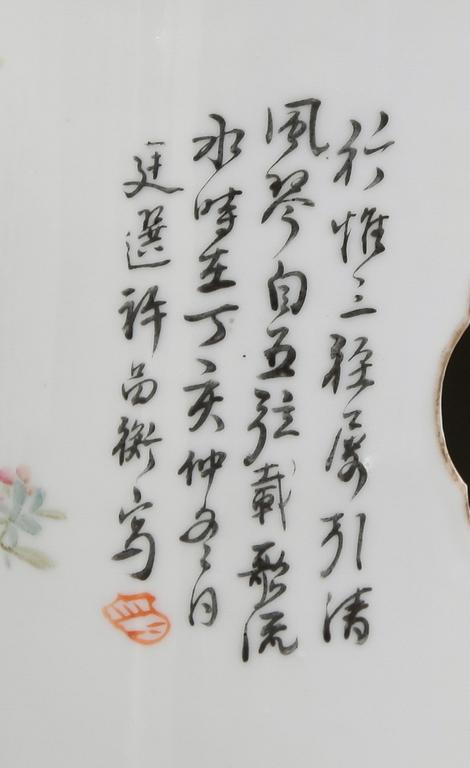 竹惟三徑屢引清
風琴自五弦載歌流
水時在丁亥仲冬月
廷選許品衡寫